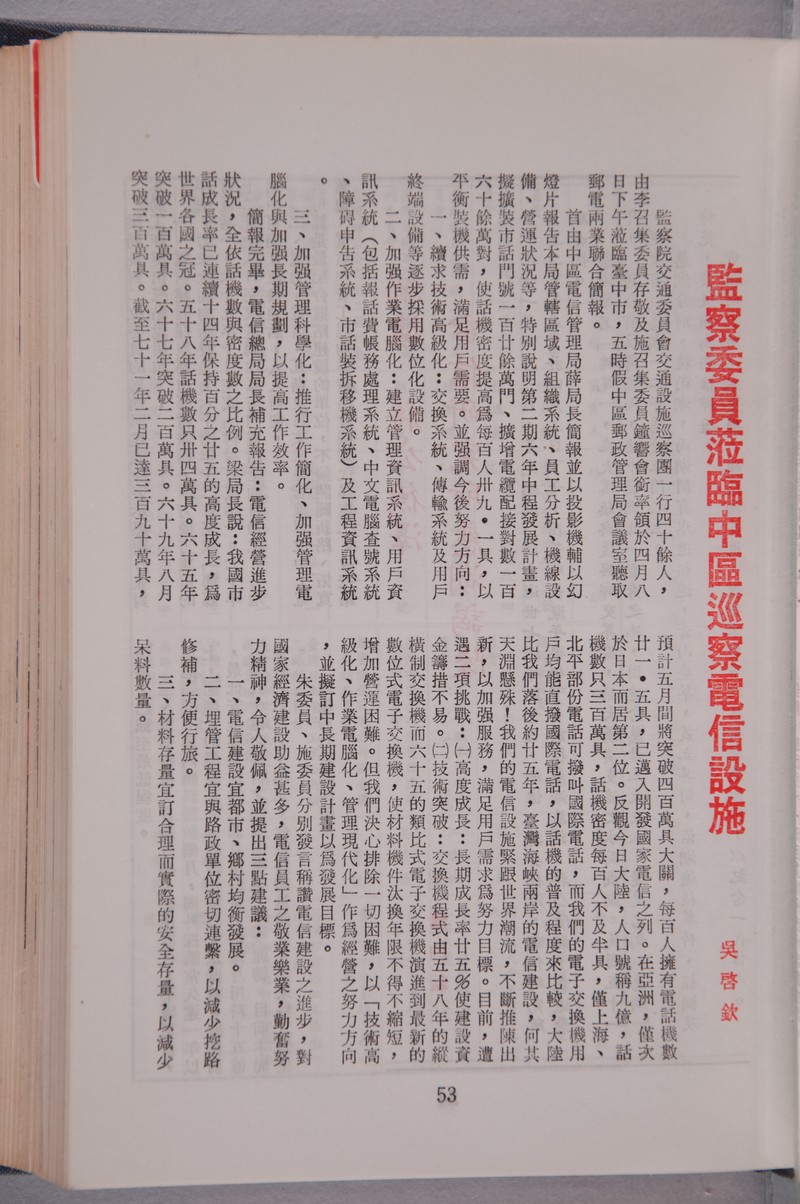 監察委員蒞臨中區巡察電信設施
吳啓欽
監察院交通委員會交通設施巡察團一行四十餘人，
由李召集委員存敬及施召集委員鐘響會銜率領於四月八
日下午蒞臨臺中市，五時假中區郵政管理局會議室聽取
郵電兩業聯合簡報。
首由中區電信管理局薛局長簡報並以投影機輔以幻
燈片報告本局管轄區域、組織系統、員工分析、機線設
備、營運狀況等，特別說明第二期六年中程發展計畫，
擬擴裝市話門號一百廿餘萬門、擴增電纜配接對數一百
六十餘萬對，使話機密度提高爲每百人卅九•一具，以
平衡裝機供需，滿足用戶需要。並强調今後努力方向：
一、續求技術高級化：交換系統、傳輸系統及用戶
終端設備等逐步採用數位化設備。
二、加强作業電腦化：建立管理資訊系統、用戶資
訊系統（包括報話費帳務處理系統、中文電腦查號系統
、障碍申告系統、市話裝拆移機系統）及工程資訊系統
。
三、加强管理科學化：推行工作簡化、加强管理電
腦化與加强長期規劃，以提高工作效率。
簡報完畢，電信總局局長補充報告：電信經營進步
狀況，全依話機數與密度數之比例。梁局長說：我國市
話成長率已連續十四年保持百分之廿五的高度成長，爲
世界各國之冠。五十八年話機數只卅四萬具。六十五年
突破一百萬具。六十七年突破二百萬具。六十九年八月
突破三百萬具。截至七十一年二月已達三百九十萬具，
預計五月間將突破四百萬具大關，每百人擁有電話機數
廿一•五具，已邁入開發國家電信之列。在亞洲，僅次
於日本而居第二位。反觀今日大陸，人口號稱九億，話
機數只三百萬具，話機密度每百人不及半具，僅上海、
北平部份電話可撥叫國際電話，而我們的電子交換機用
戶均能直撥國際電話，以話機的普及程度來比較，大陸
比我們落後約廿五年，臺灣海峽兩岸的電信建設，何其
天淵懸殊！我們的電信設施緊跟世界潮流，不斷推陳出
新，以加强服務，滿足用戶需求爲努力目標。目前，遭
遇二項挑戰：㈠高度成長：長期成長率廿五％使建設資
金籌措不易。㈡技術突破：交換機程式由五十八年的縱
橫制交換機而六十五的類比式電子交換機演進到最新的
數位式電子交換機，使材料機件汰換年限不得不縮短，
增加營運困難。但我們決心排除一切困難，以「技術高
級化、作業電腦化、管理現代化」作爲經營之努力方向
，並擬訂中長期建設計畫以爲發展目標。
朱委員、施委員分別發言稱讚電信建設之進步，對
國家經濟建設助益甚多，電信員工之敬業樂業，勤奮努
力精神，令人敬佩，並提出三點建議：
一、電信建設宜都市、鄉村均衡發展。
二、埋管工程宜與路政單位密切連繫，以減少挖路
修補，方便行旅。
三、材料存量宜訂合理而實際的安全存量，以減少
呆料數量。
53